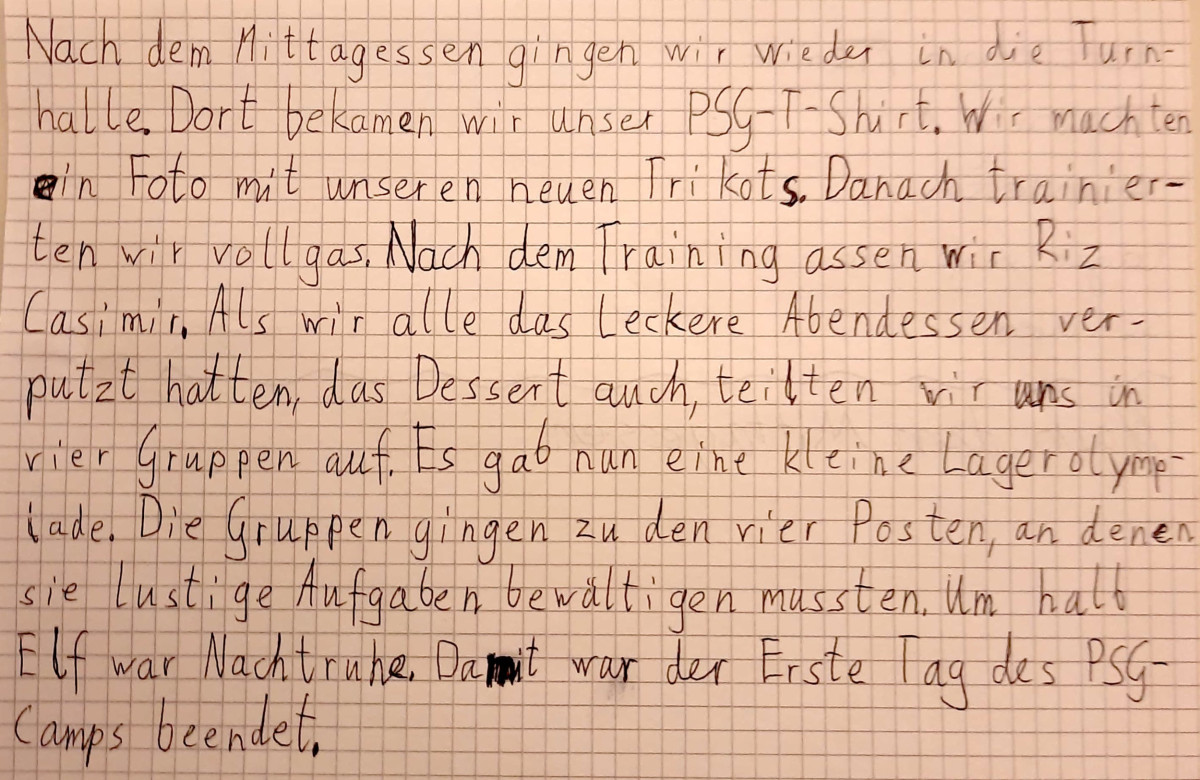 Nach dem Mittagessen gingen wir wieder in die Turn-
halle. Dort bekamen wir unser PSG-T-Shirt. Wir machten
ein Foto mit unseren neuen Trikots. Danach trainier-
ten wir vollgas. Nach dem Training assen wir Riz
Casimir. Als wir alle das leckere Abendessen ver-
putzt hatten, das Dessert auch, teilten wir uns in
vier Gruppen auf. Es gab nun eine kleine Lagerolymp-
iade. Die Gruppen gingen zu den vier Posten, an denen
sie lustige Aufgaben bewältigen mussten. Um halb
Elf war Nachtruhe. Damit war der Erste Tag des PSG-
Camps beendet.